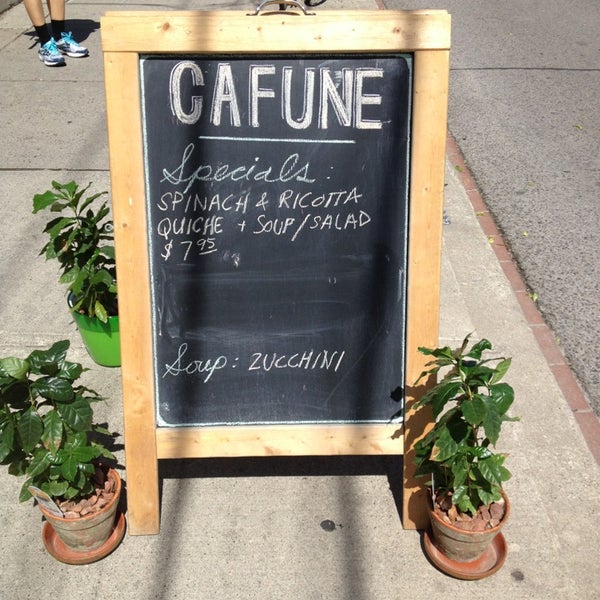 CAFUNE
Specials:
SPINACH & RICOTTA
QUICHE + SOUP/SALAD
$7.95
Soup: ZUCCHINI